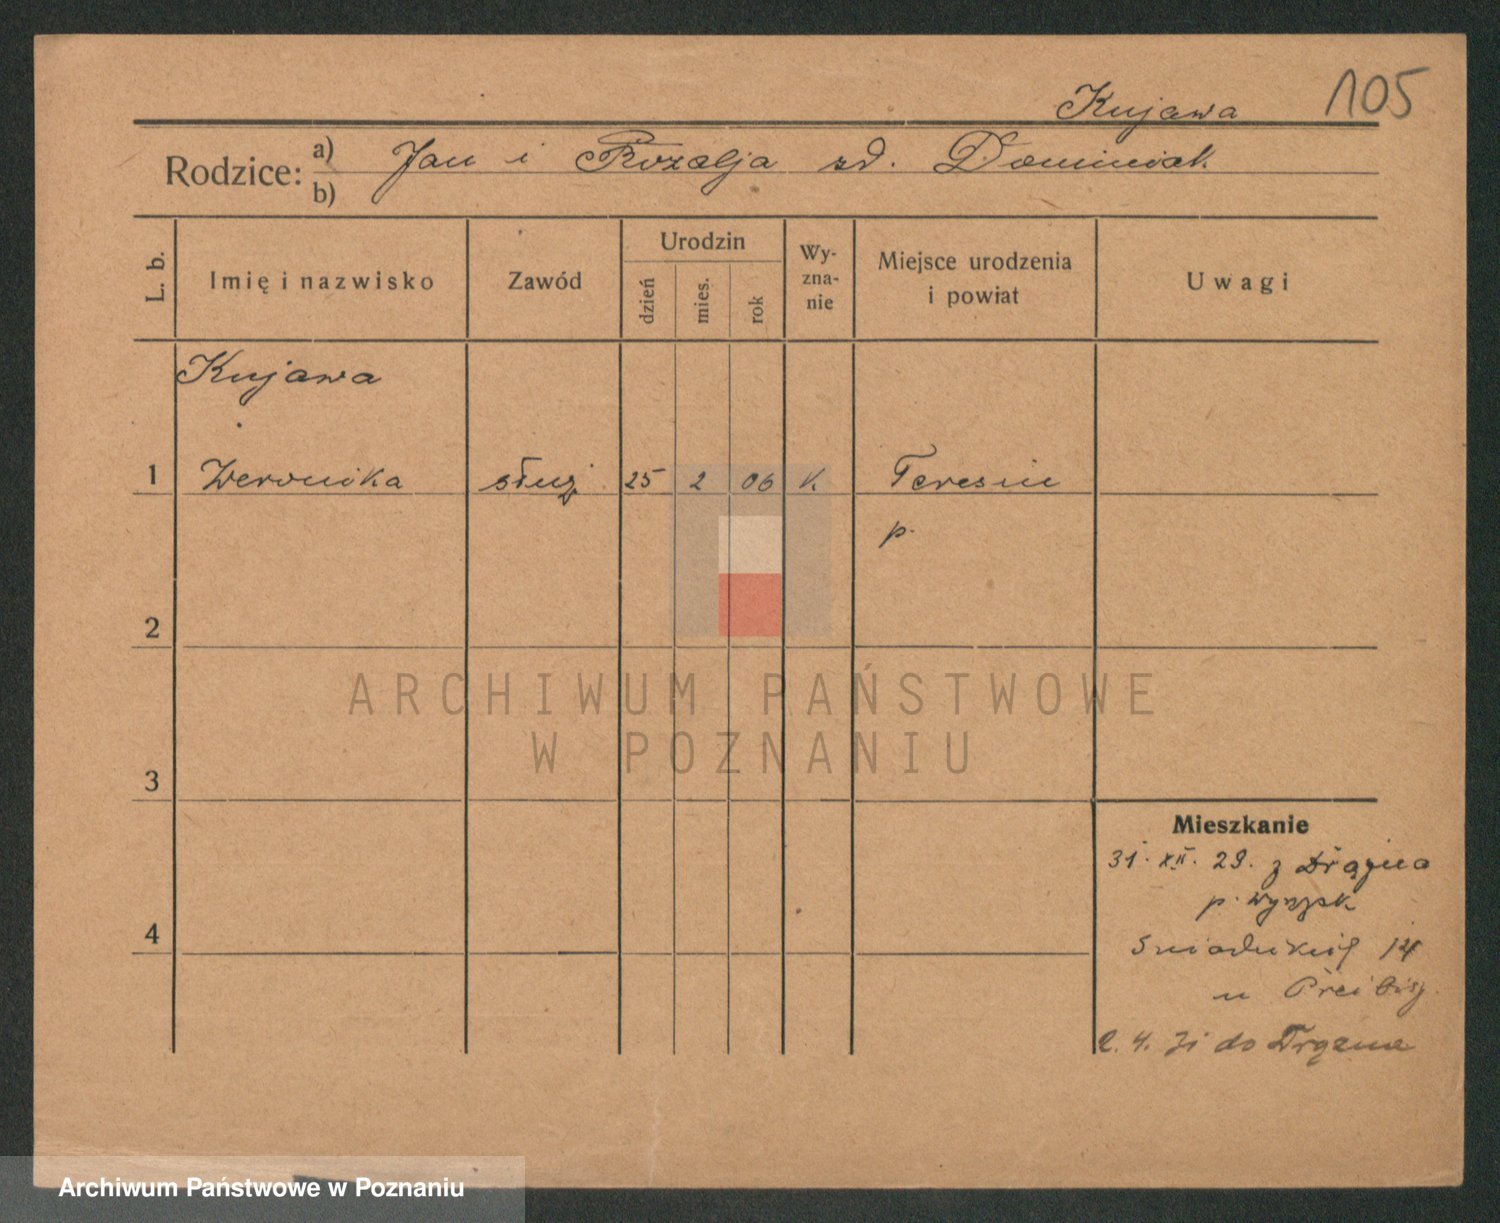 Kujawa 105
Rodzice: a) b) Jan i Rozalja zd. Dominiak
L. b. Imię i nazwisko Zawód Urodzin dzień mies. rok Wyznanie Miejsce urodzenia i powiat Uwagi
Kujawa
1 Weronika służ 25 2 06 k. Teresin
p.
2
ARCHIWUM PAŃSTWOWE
W POZNANIU
3
Mieszkanie
31. XII. 29. z
p. wyrzysk
4
Śniadeckich 14
u
2. 4. do
Archiwum Państwowe w Poznaniu